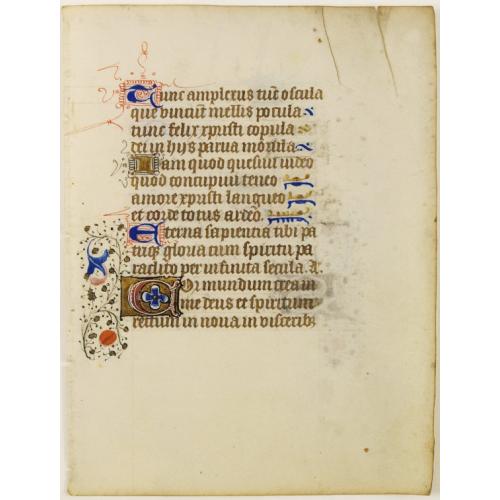 Tunc amplexus tūc oscula
que vincunt mellis pocula
tunc felix xpristi copula
dei in hys parua morula
Iam quod quesiui video
quod concupiui teneo
amore xpristi langueo
et corde totus ardeo.
Eterna sapientia tibi pa
triq̄ gloria cum spiritu pa
raclito per infinita secula. A.
Cor mundum crea in
me deus et spiritum
rectum in noua in visceribȝ